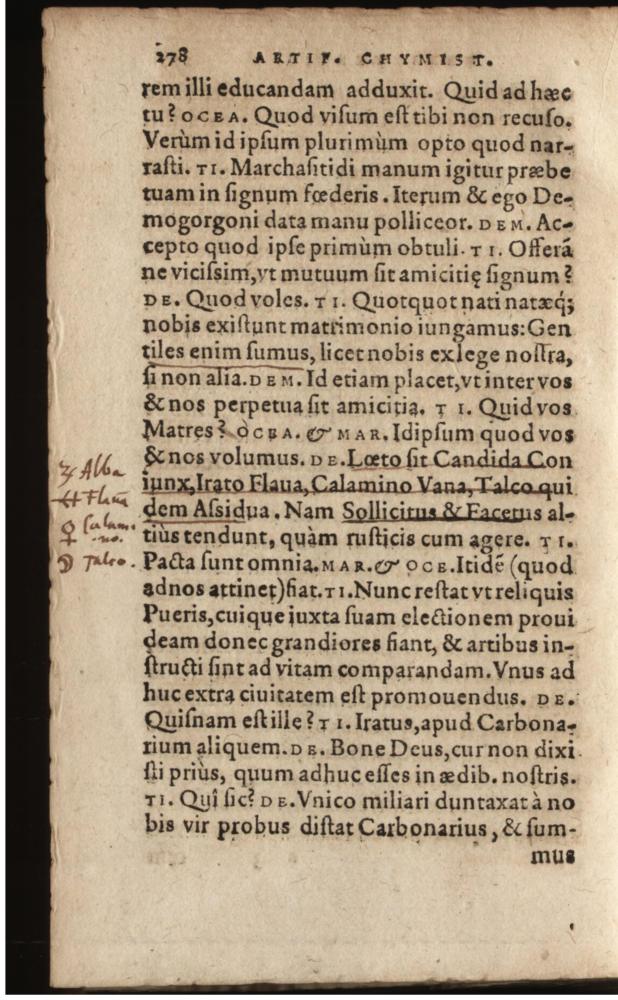 278 ARTIF. CHYMIST.
rem illi educandam adduxit. Quid ad hæc
tu? OCEA. Quod visum est tibi non recuso.
Verùm id ipsum plurimùm opto quod nar-
rasti. TI. Marchasitidi manum igitur præbe
tuam in signum fœderis. Iterum & ego De-
mogorgoni data manu polliceor. DEM. Ac-
cepto quod ipse primùm obtuli. TI. Offerā
ne vicissim, vt mutuum sit amicitię signum?
DE. Quod voles. TI. Quotquot nati natæq́;
nobis existunt matrimonio iungamus: Gen
tiles enim sumus, licet nobis ex lege nostra,
si non alia. DEM. Id etiam placet, vt inter vos
& nos perpetua sit amicitia. TI. Quid vos
Matres? OCEA. & MAR. Idipsum quod vos
& nos volumus. DE. Lœto sit Candida Con
iunx, Irato Flaua, Calamino Vana, Talco qui
dem Assidua. Nam Sollicitus & Facetus al-
tiùs tendunt, quàm rusticis cum agere. TI.
Pacta sunt omnia. MAR. & OCE. Itidē (quod
ad nos attinet) fiat. TI. Nunc restat vt reliquis
Pueris, cuique iuxta suam electionem proui
deam donec grandiores fiant, & artibus in-
structi sint ad vitam comparandam. Vnus ad
huc extra ciuitatem est promouendus. DE.
Quisnam est ille? TI. Iratus, apud Carbona-
rium aliquem. DE. Bone Deus, cur non dixi
sti priùs, quum adhuc esses in ædib. nostris.
TI. Quî sic? DE. Vnico miliari duntaxat à no
bis vir probus distat Carbonarius, & sum-
mus
♃ Alba
♀ Calami
no.
☽ Talco.